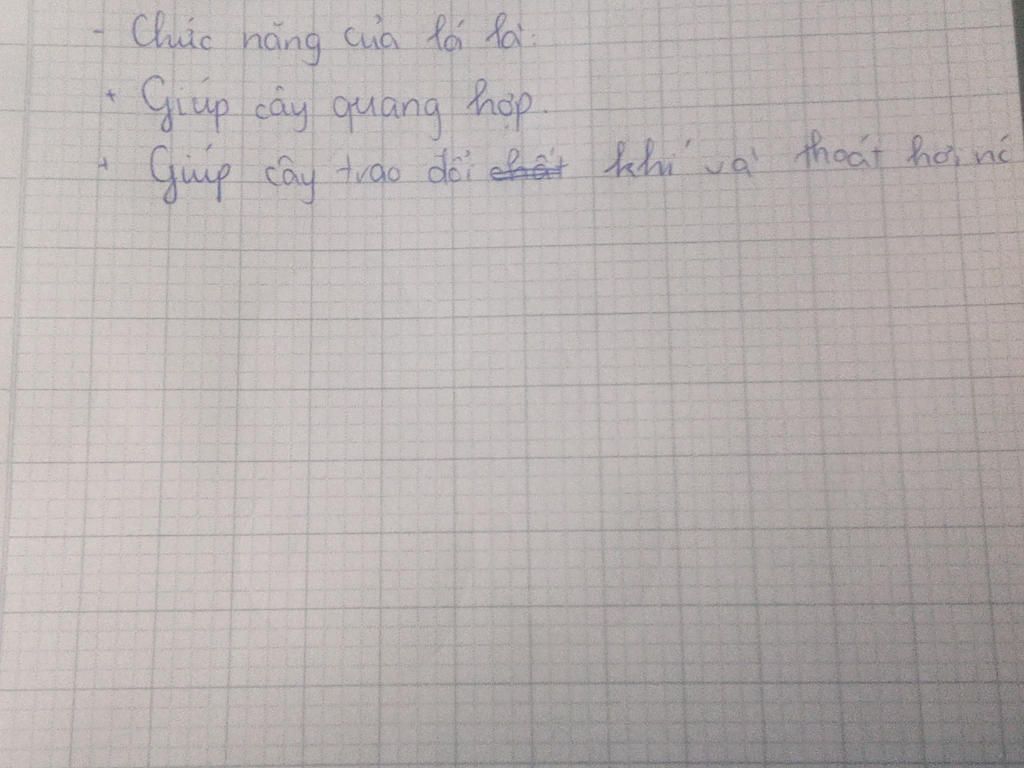 - Chức năng của lá là:
+ Giúp cây quang hợp.
+ Giúp cây trao đổi chất khí và thoát hơi nc